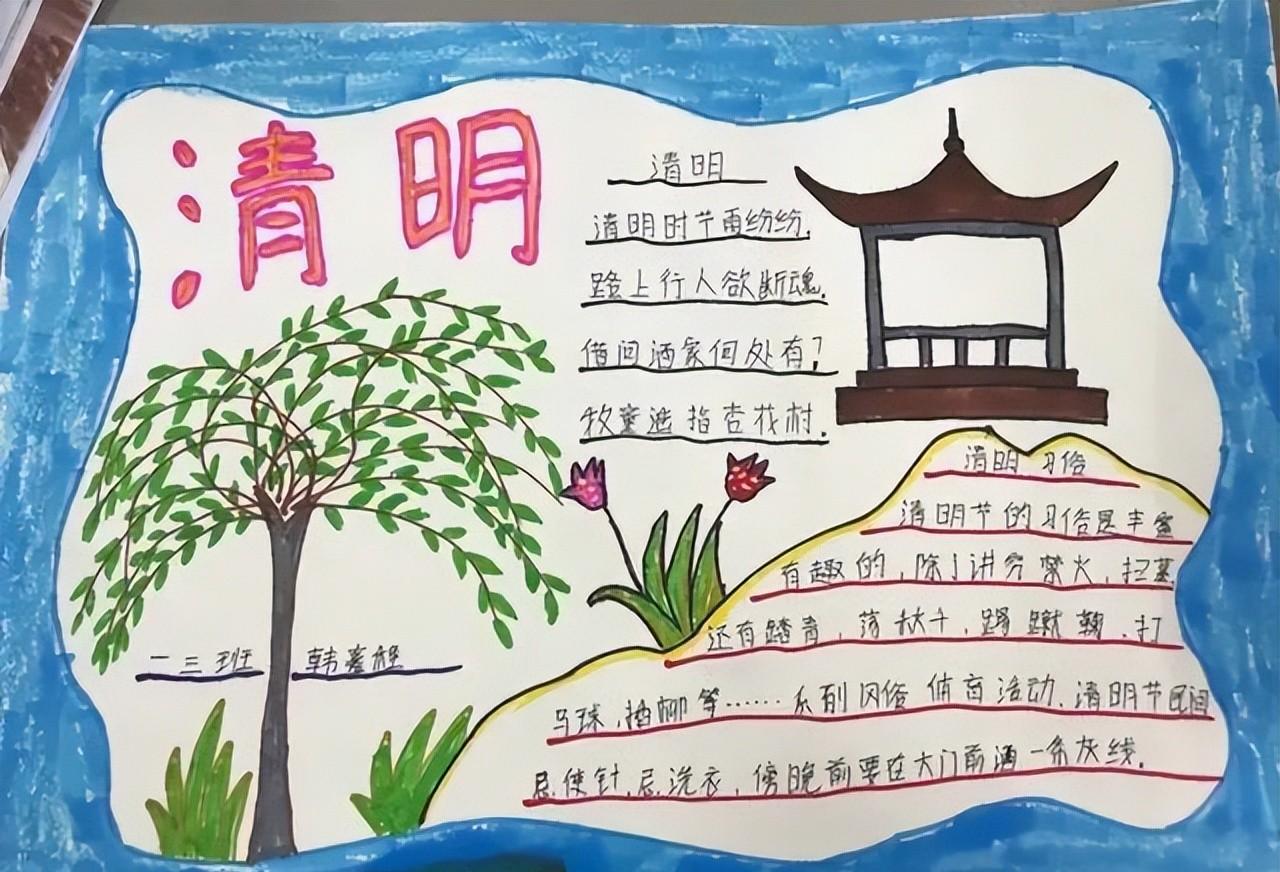 清明
清明
清明时节雨纷纷,
路上行人欲断魂.
借问酒家何处有?
牧童遥指杏花村.
清明 习俗
清明节的习俗是丰富
有趣的,除了讲究禁火,扫墓
还有踏青,荡秋千,踢蹴鞠,打
马球,插柳等……系列风俗体育活动.清明节民间
忌使针,忌洗衣,傍晚前要在大门前洒一条灰线.
一三班 韩